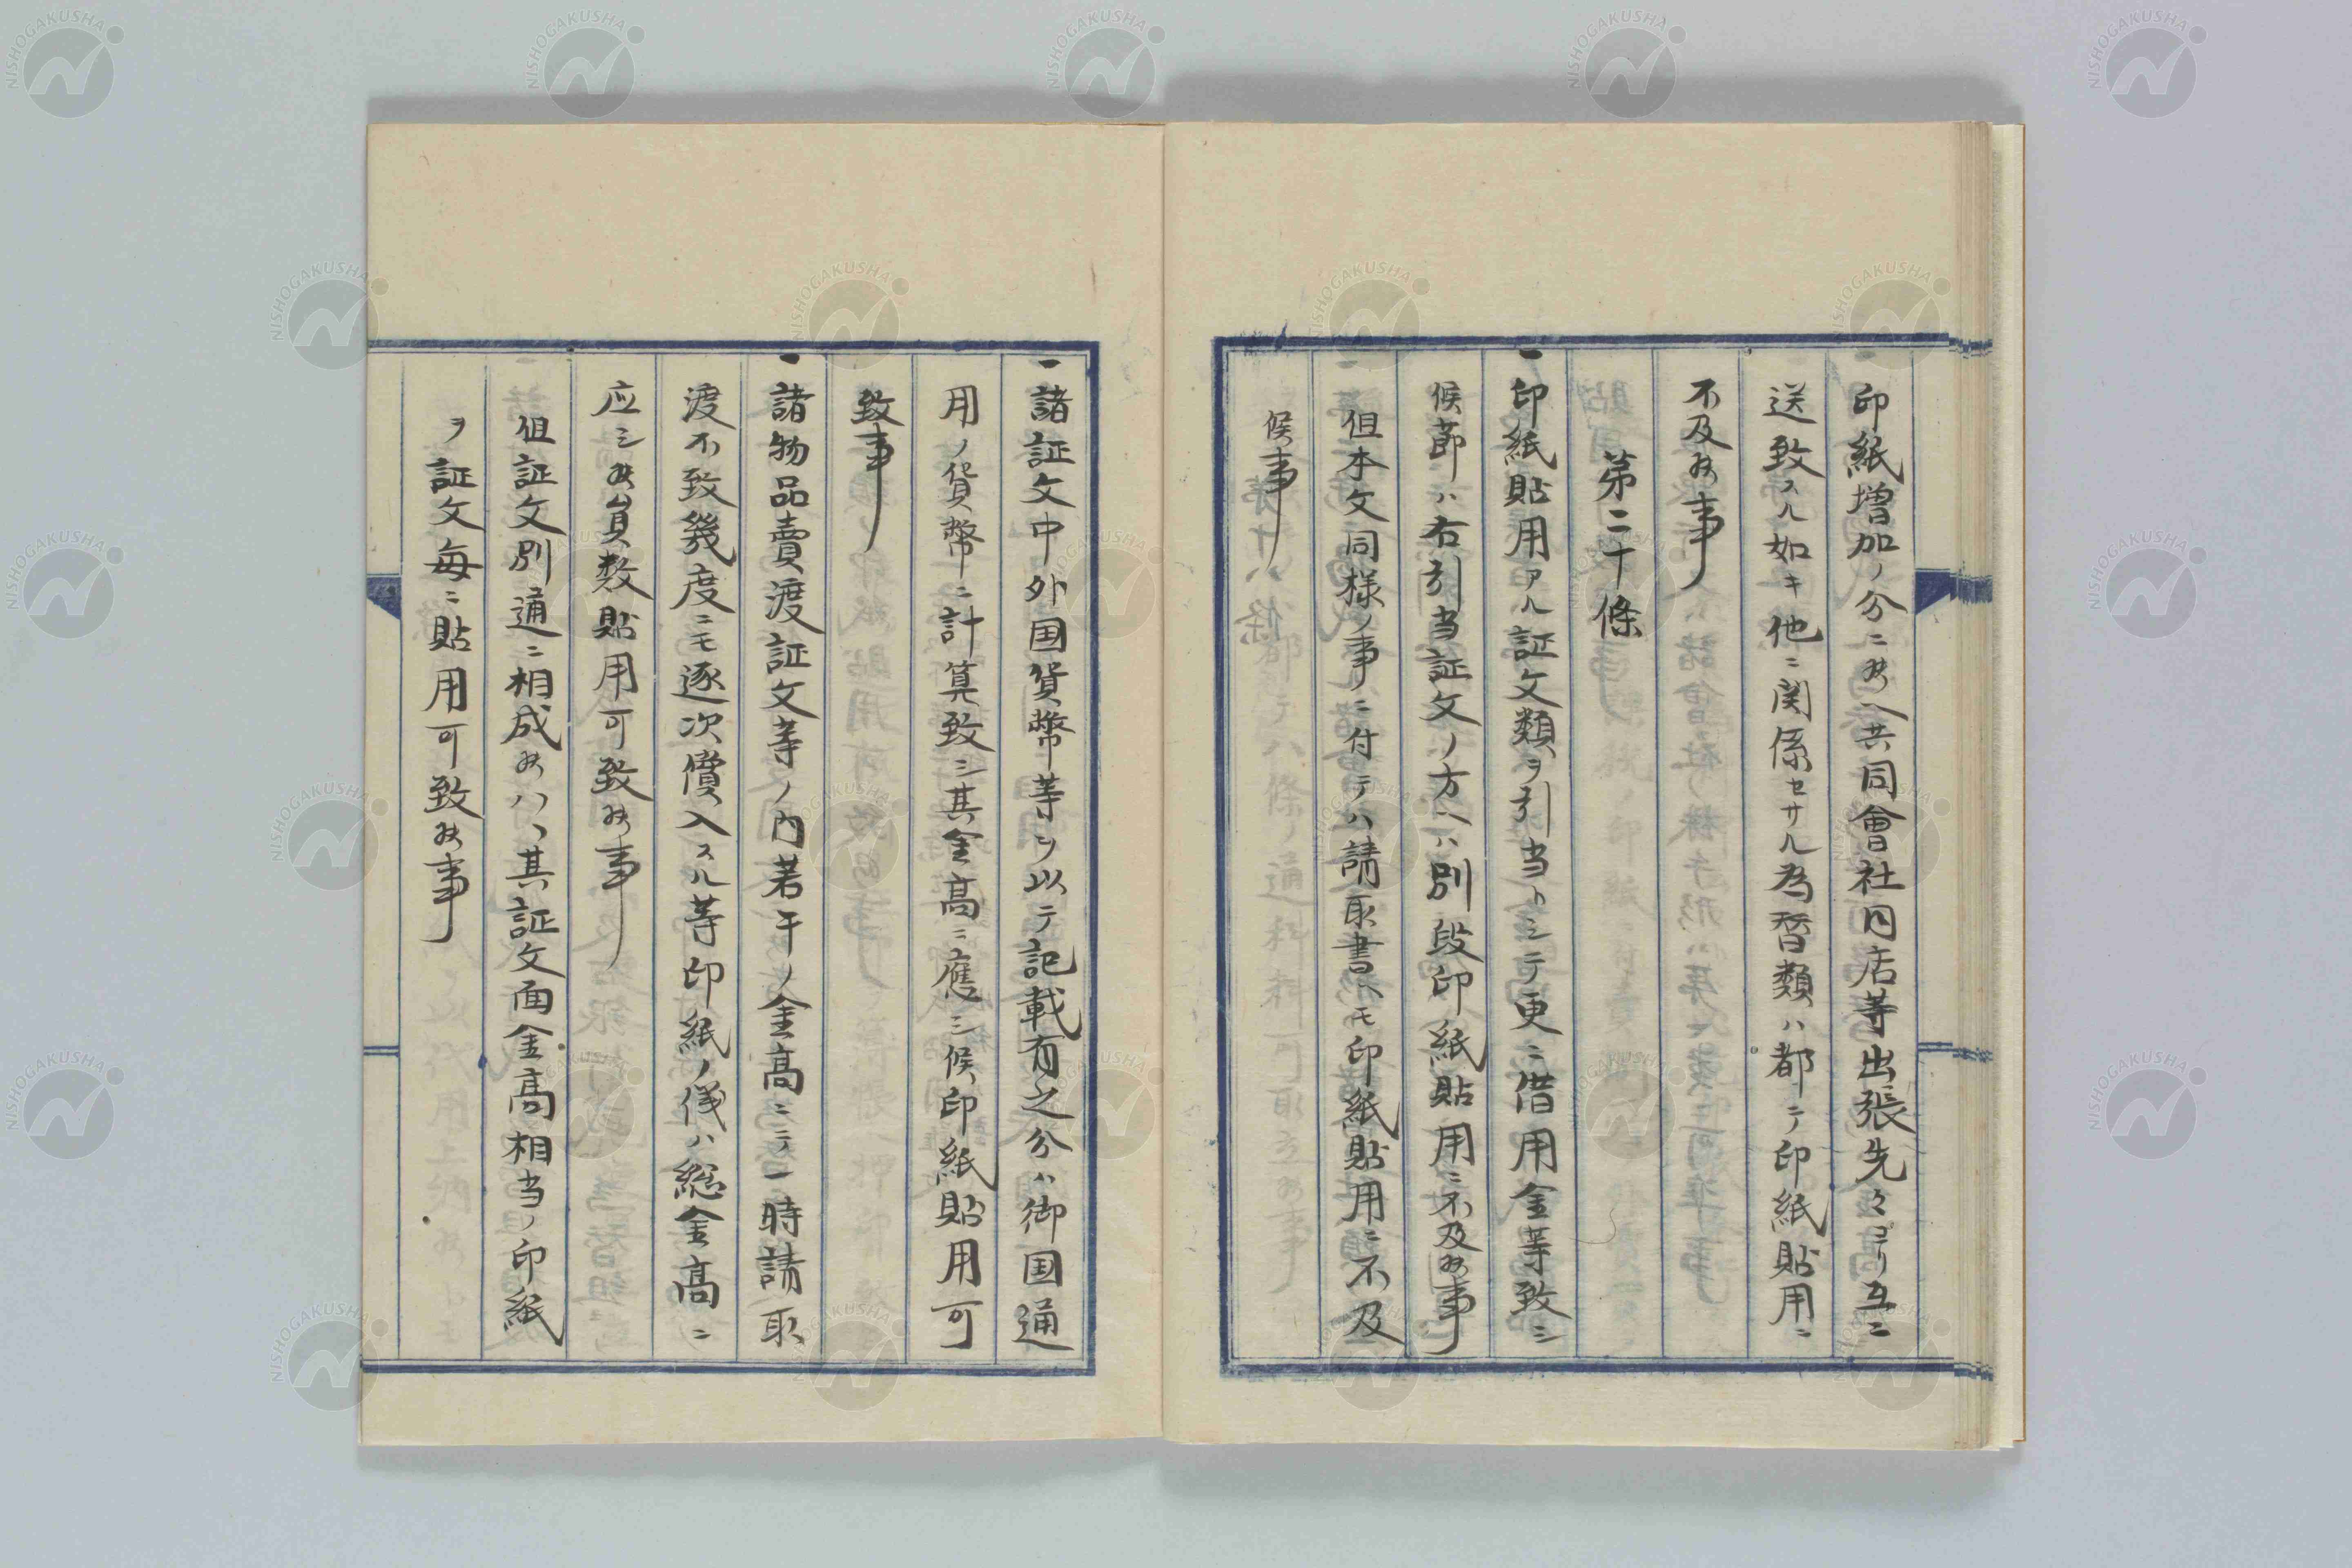 印紙増加ノ分ニ候ヘ共同會社内店等出張先々ヨリ互ニ
送致スル如キ他ニ関係セサル為替類ハ都テ印紙貼用ニ
不及候事
第二十條
一印紙貼用アル証文類ヲ引当トシテ更ニ借用金等致シ
候節ハ右引当証文ノ方ヘハ別段印紙貼用ニ不及候事
但本文同様ノ事ニ付テハ請取書ヘモ印紙貼用ニ不及
候事
一諸証文中外国貨幣等ヲ以テ記載有之分ハ御国通
用ノ貨幣ニ計算致シ其金高ニ應シ候印紙貼用可
致事
一諸物品賣渡証文等ノ内若干ノ金高ニテ一時請取
渡不致幾度ニモ逐次償入スル等印紙ノ儀ハ総金高ニ
応シ候員数貼用可致候事
但証文別通ニ相成候ハヽ其証文面金高相当ノ印紙
ヲ証文毎ニ貼用可致候事
NISHOGAKUSHA